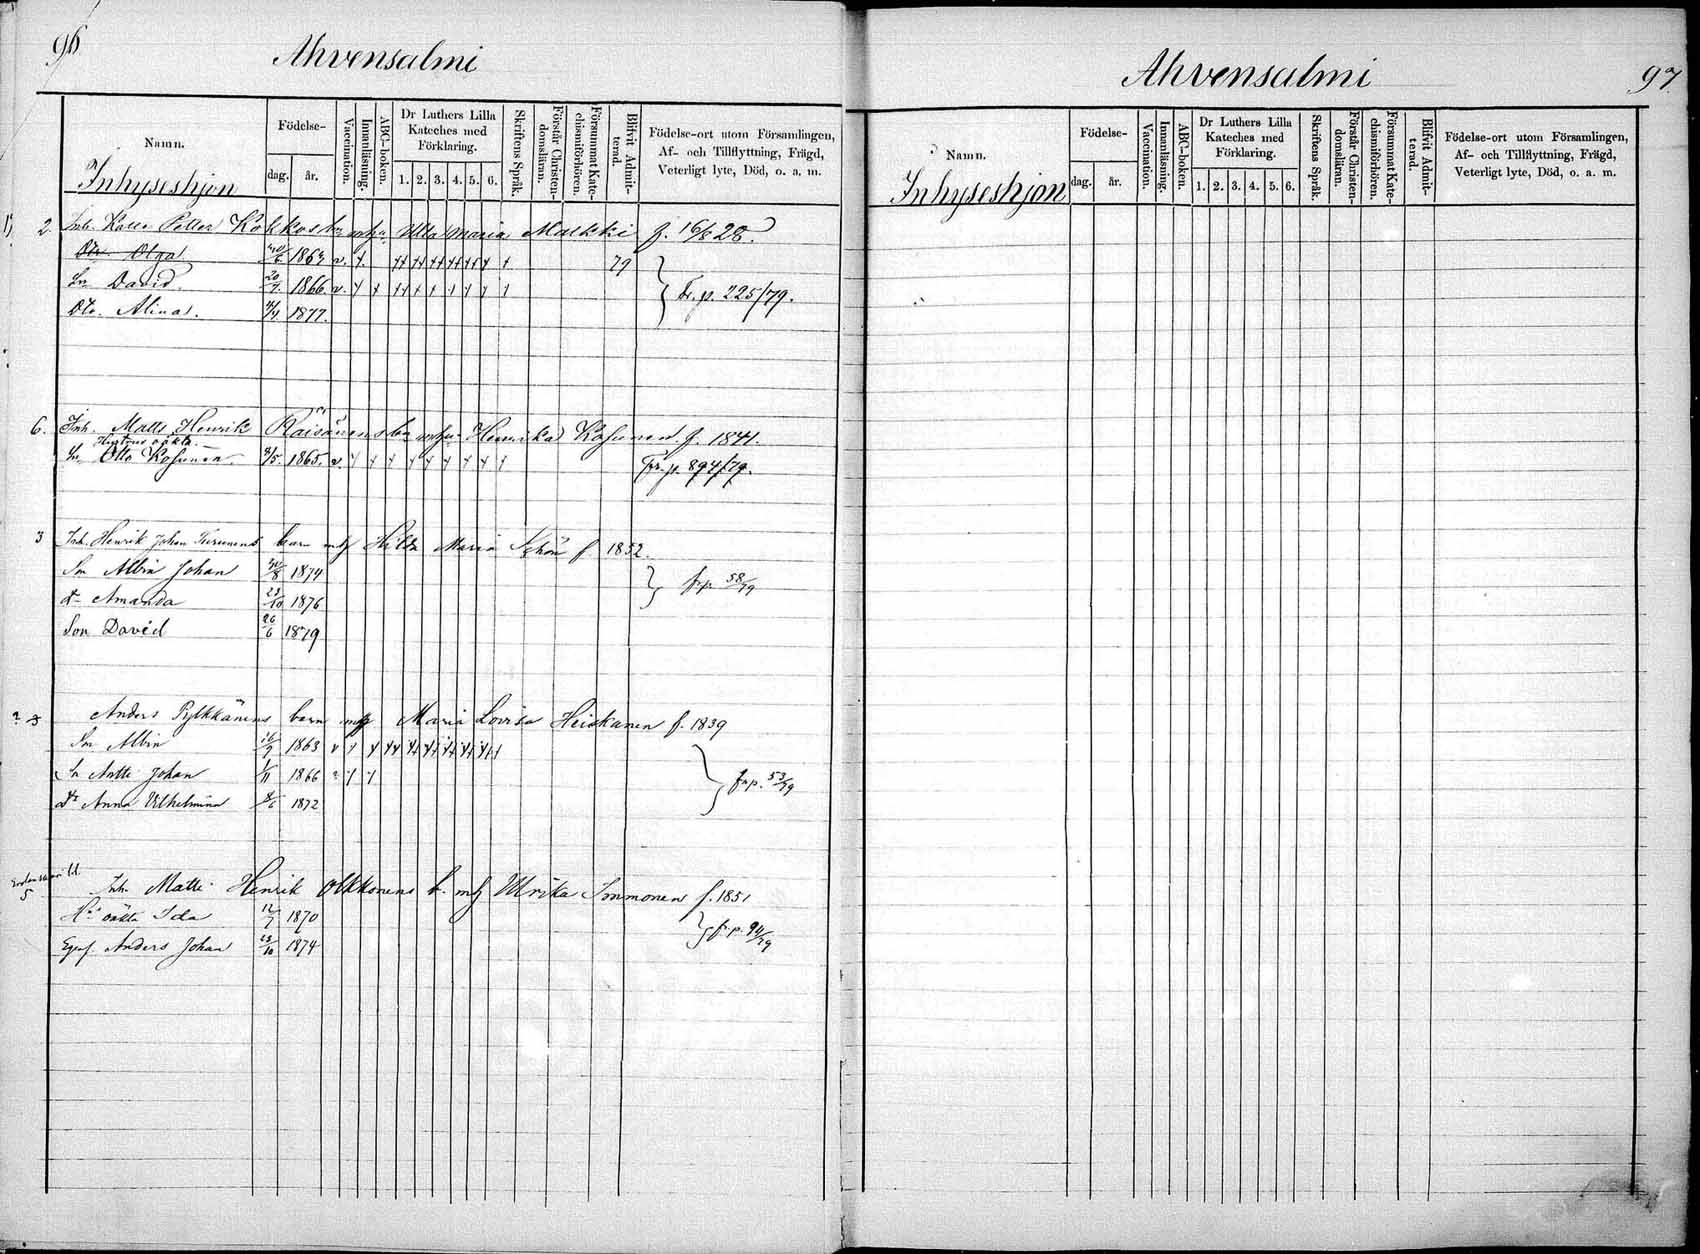 96
Ahvensalmi
Namn.
Inhyseshjon
Födelse-
dag.
år.
Vaccination.
Innanläsning.
ABC-boken.
Dr Luthers Lilla
Kateches med
Förklaring.
1. 2. 3. 4. 5. 6.
Skriftens Språk.
Förstår Christen-
domsläran.
Försummat Kate-
chismiförhören.
Blifvit Admit-
terad.
Födelse-ort utom Församlingen,
Af- och Tillflyttning, Frägd,
Veterligt lyte, Död, o. a. m.
2 Inh. Petter Kokkos bn m hu Ulla Maria Malkki f. 16/8 28.
Dtr Olga 1863 v. 79
Sn David. 20/7. 1866. v. Fr. p. 225/79.
Dtr. Alina. 1877.
6. Inh. Matts Henrik Räisänens bn m hu Henrika Kosunen. f. 1841.
Hustrus oäkta
Sn Otto Kosunen. 1865. v. Fr. p. 894/79.
3 Inh. Henrik Johan Turunens barn m h Hilda Maria f. 1852.
Sn Albin Johan 30/8 1874 fr p. 58/79
Dr Amanda 23/10 1876
Son David 26/6 1879
Anders Pylkkänens barn m h Maria Lovisa Heiskanen f. 1839
Sn Albin 16/9 1863
Sn Antti Johan 1/11 1866 fr p. 53/79
Dr Anna Vilhelmina 1872
5 Inh. Matts Henrik Olkkonens b. m h Ulrika Immonen f. 1851
Hs oäkta Ida 12/7 1870 fr p. 94/79
Anders Johan 23/10 1874
Ahvensalmi
97
Namn.
Inhyseshjon
Födelse-
dag.
år.
Vaccination.
Innanläsning.
ABC-boken.
Dr Luthers Lilla
Kateches med
Förklaring.
1. 2. 3. 4. 5. 6.
Skriftens Språk.
Förstår Christen-
domsläran.
Försummat Kate-
chismiförhören.
Blifvit Admit-
terad.
Födelse-ort utom Församlingen,
Af- och Tillflyttning, Frägd,
Veterligt lyte, Död, o. a. m.